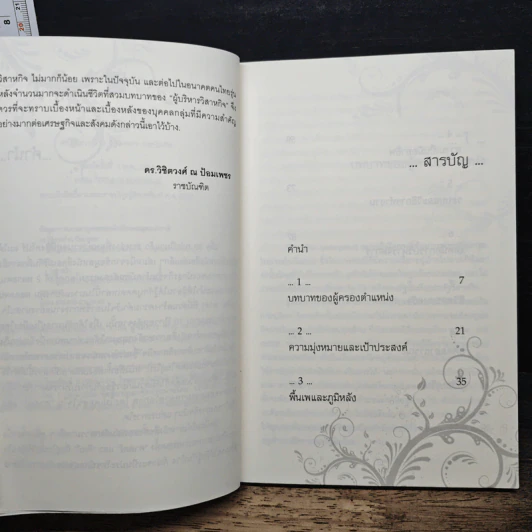 วิสาหกิจ ไม่มากก็น้อย เพราะในปัจจุบัน และต่อไปในอนาคตคนไทยรุ่น
หลังจำนวนมากจะดำเนินชีวิตที่สวมบทบาทของ "ผู้บริหารวิสาหกิจ" จึง
ควรที่จะทราบเบื้องหน้าและเบื้องหลังของบุคคลกลุ่มที่มีความสำคัญ
อย่างมากต่อเศรษฐกิจและสังคมดังกล่าวนี้เอาไว้บ้าง
ดร.วิชิตวงศ์ ณ ป้อมเพชร
ราชบัณฑิต
... สารบัญ ...
คำนำ
... 1 ... 7
บทบาทของผู้ครองตำแหน่ง
... 2 ... 21
ความมุ่งหมายและเป้าประสงค์
... 3 ... 35
พื้นเพและภูมิหลัง